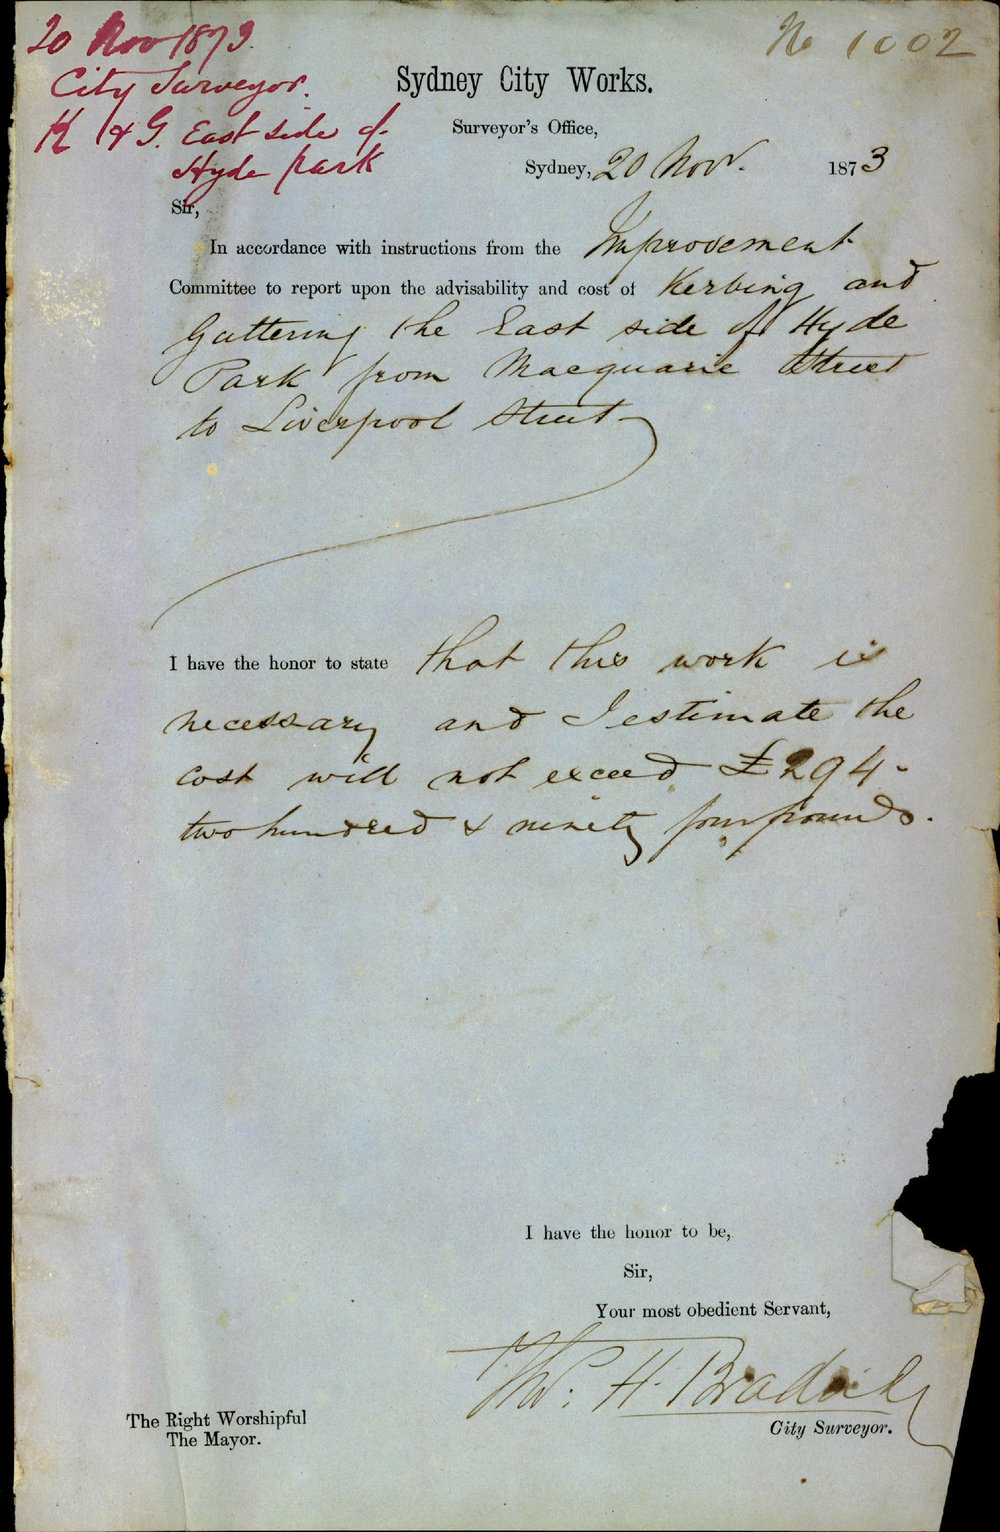 20 Nov 1873.
City Surveyor.
K & G. East side of
Hyde Park
No 1002
Sydney City Works.
Surveyor's Office,
Sydney, 20 Novr. 1873
Sir,
In accordance with instructions from the Improvement
Committee to report upon the advisability and cost of Kerbing and
Guttering the East side of Hyde
Park from Macquarie Street
to Liverpool Street
I have the honor to state that this work is
necessary and I estimate the
cost will not exceed £294-
two hundred & ninety four pounds.
I have the honor to be,
Sir,
Your most obedient Servant,
Thos. H. Bradridge
City Surveyor.
The Right Worshipful
The Mayor.